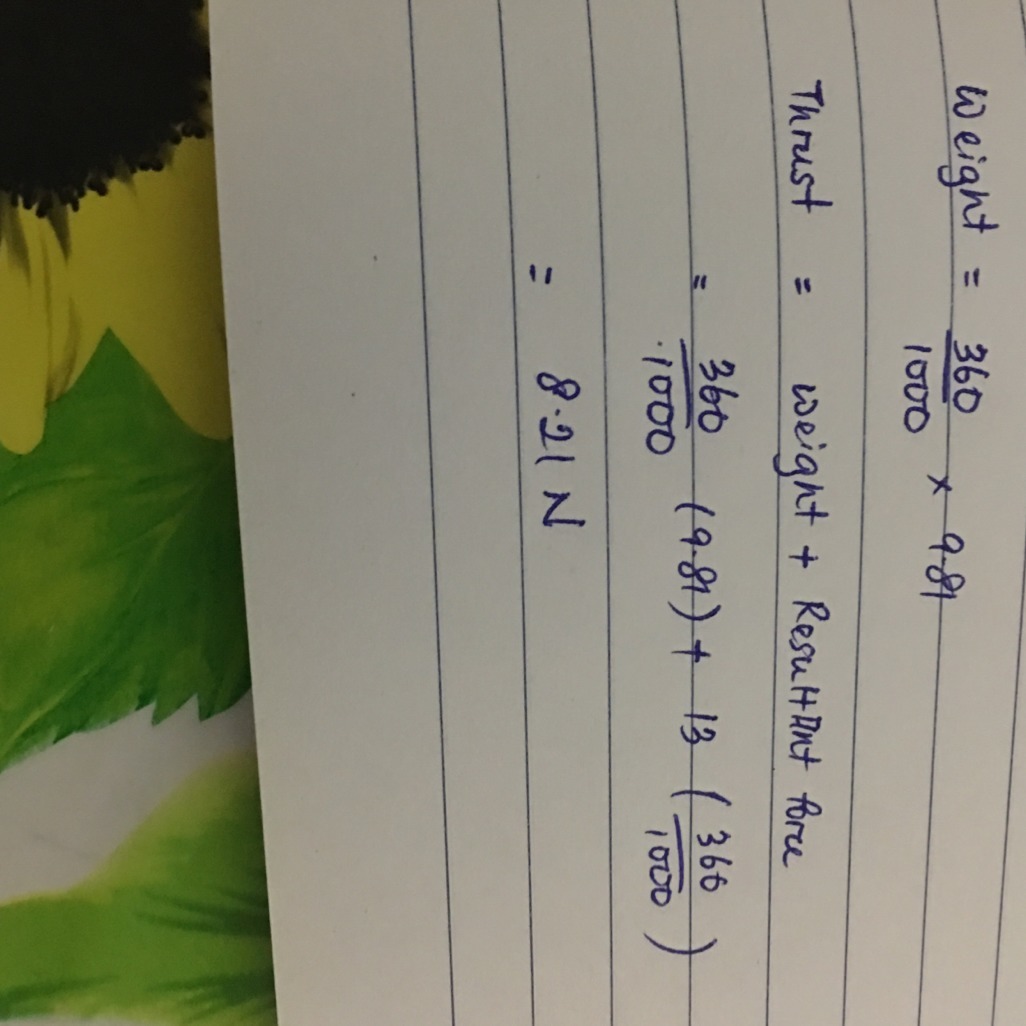 Weight = 360/1000 × 9.81
Thrust = weight + Resultant force
= 360/1000 (9.81) + 13 (360/1000)
= 8.21 N